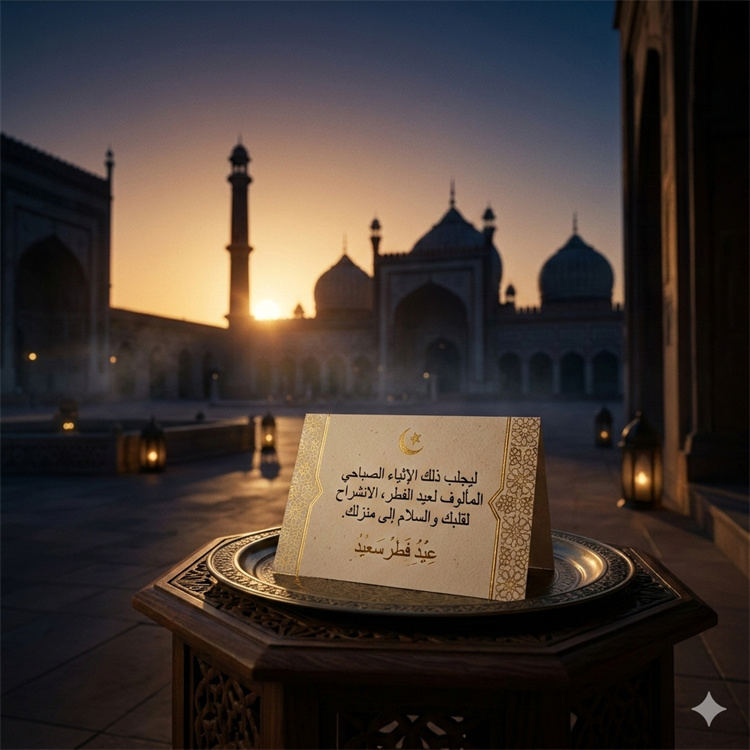 ليجلب ذلك الإثياء الصباحي
المألوف لعيد الفطر، الانشراح
لقلبك والسلام إلى منزلك.
عِيْدُ فِطْرُ سَعِيْدُ